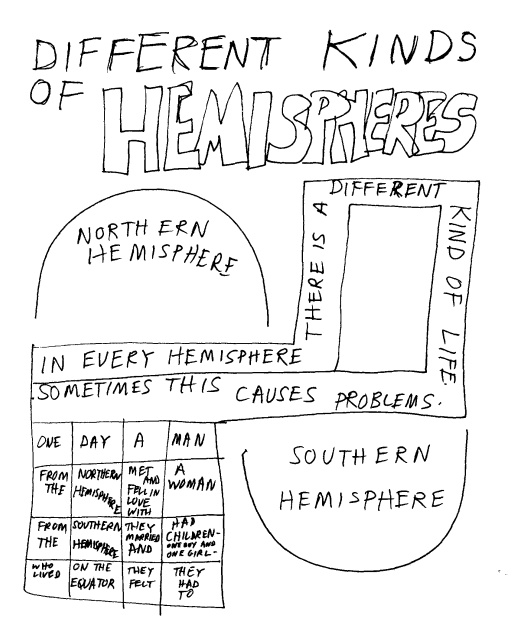 DIFFERENT KINDS
OF HEMISPHERES
NORTHERN
HEMISPHERE
IN EVERY HEMISPHERE
THERE IS A
DIFFERENT
KIND OF LIFE
SOMETIMES THIS CAUSES PROBLEMS.
ONE
DAY
A
MAN
FROM
THE
NORTHERN
HEMISPHERE
MET
AND
FELL IN
LOVE
WITH
A
WOMAN
FROM
THE
SOUTHERN
HEMISPHERE
THEY
MARRIED
AND
HAD
CHILDREN-
ONE BOY AND
ONE GIRL-
WHO
LIVED
ON THE
EQUATOR
THEY
FELT
THEY
HAD
TO
SOUTHERN
HEMISPHERE